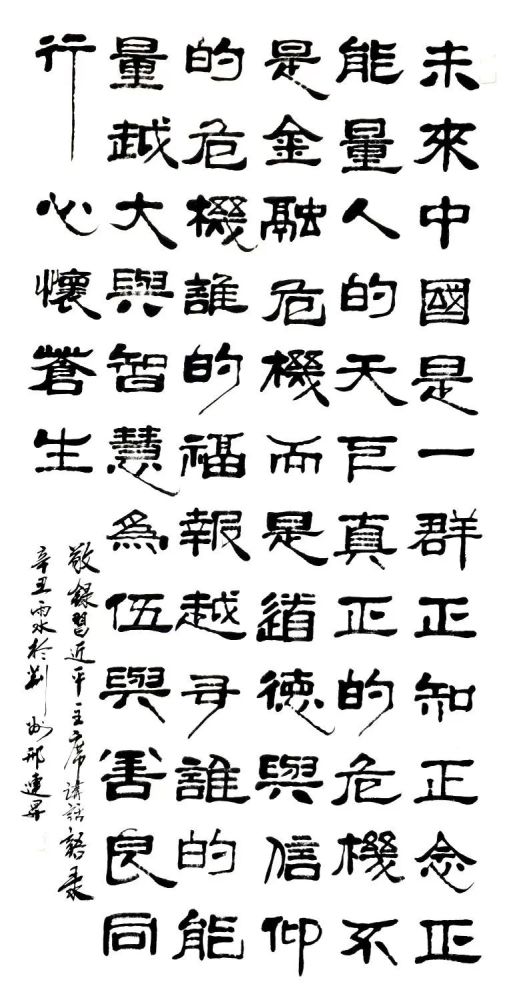 未來中國是一群正知正念正
能量人的天下真正的危機不
是金融危機而是道德與信仰
的危機誰的福報越多誰的能
量越大與智慧為伍與善良同
行心懷蒼生
敬録習近平主席講話語录
辛丑雨水於荆州邢連昇